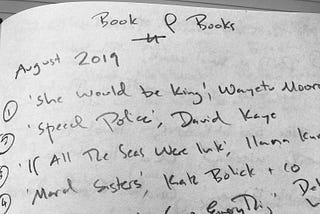 Book P Books
August 2019
① 'She Would be King', Wayetu Moore
② 'Speech Police', David Kaye
③ 'If All The Seas Were Ink', Ilana
④ 'March Sisters', Kate Bolick + co